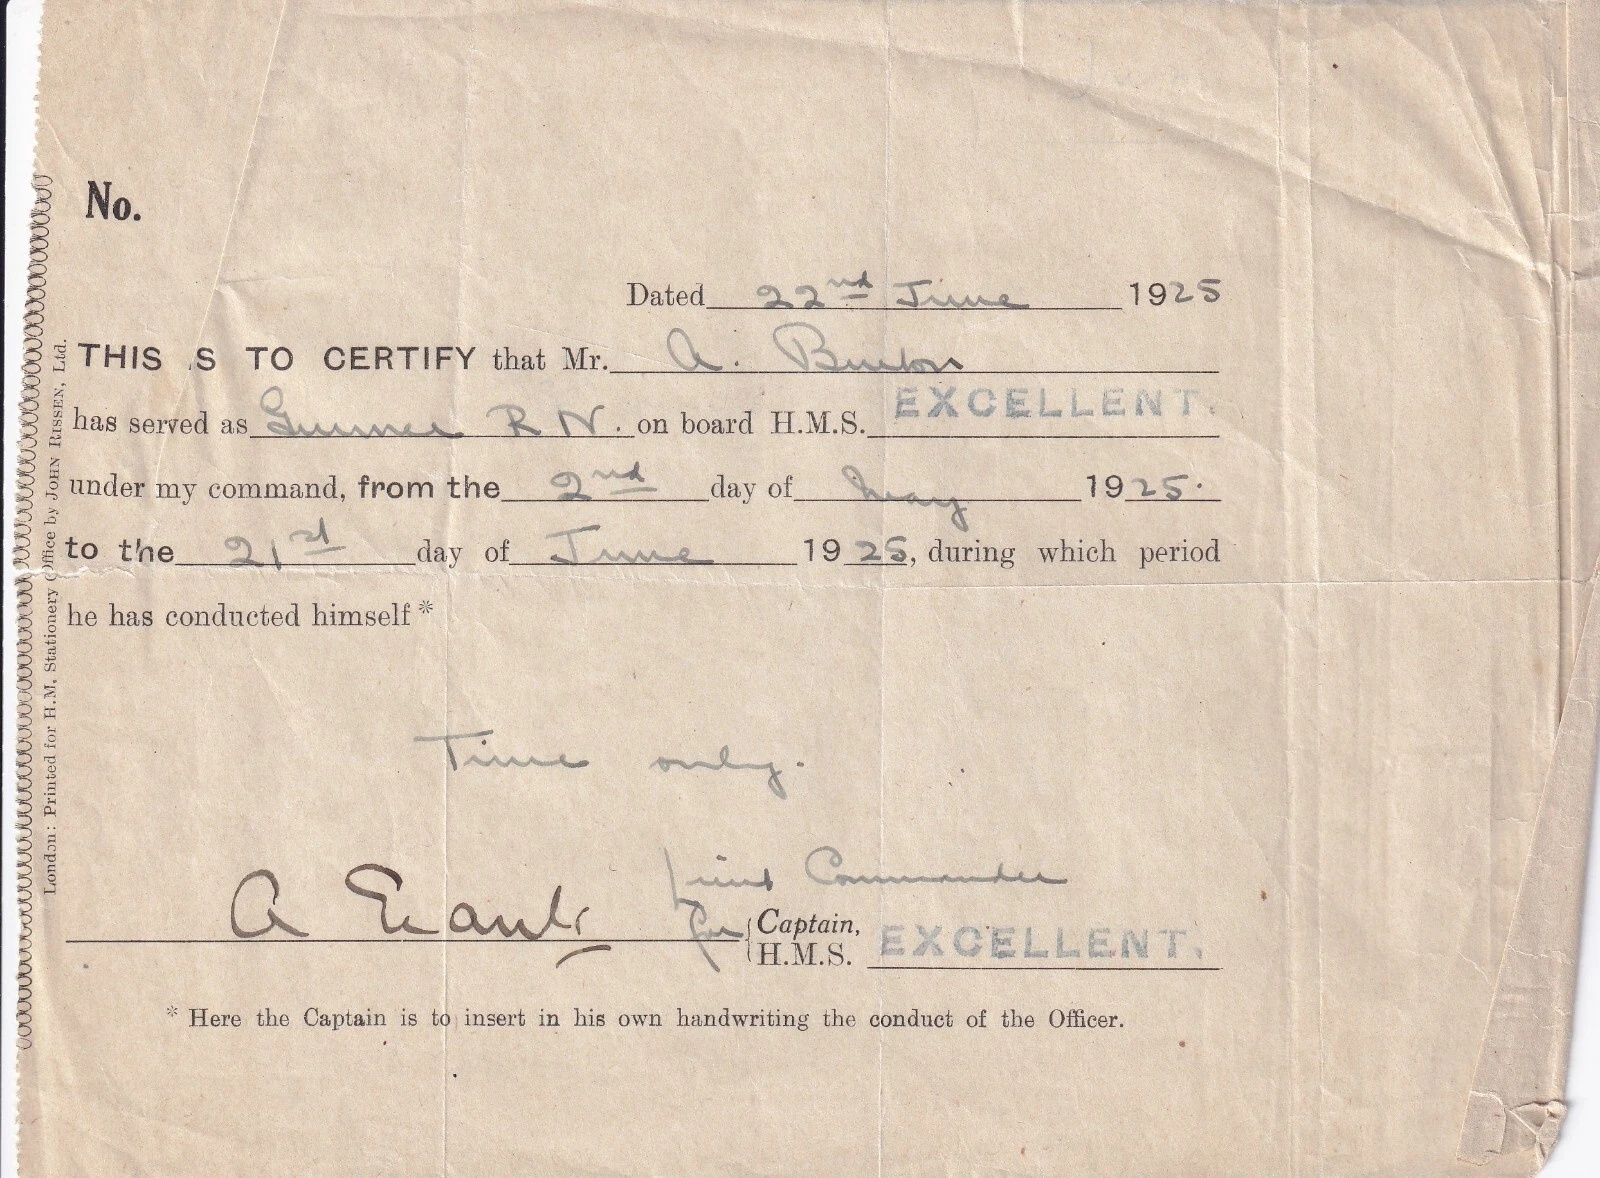 No.
Dated 22nd June 1925
THIS IS TO CERTIFY that Mr. A. Burton
has served as Gunner R N. on board H.M.S. EXCELLENT.
under my command, from the 2nd day of May 1925.
to the 21st day of June 1925, during which period
he has conducted himself *
Time only.
A Lieut Commander
for Captain,
H.M.S. EXCELLENT.
* Here the Captain is to insert in his own handwriting the conduct of the Officer.
London: Printed for H.M. Stationery Office by JOHN RISSEN, Ltd.